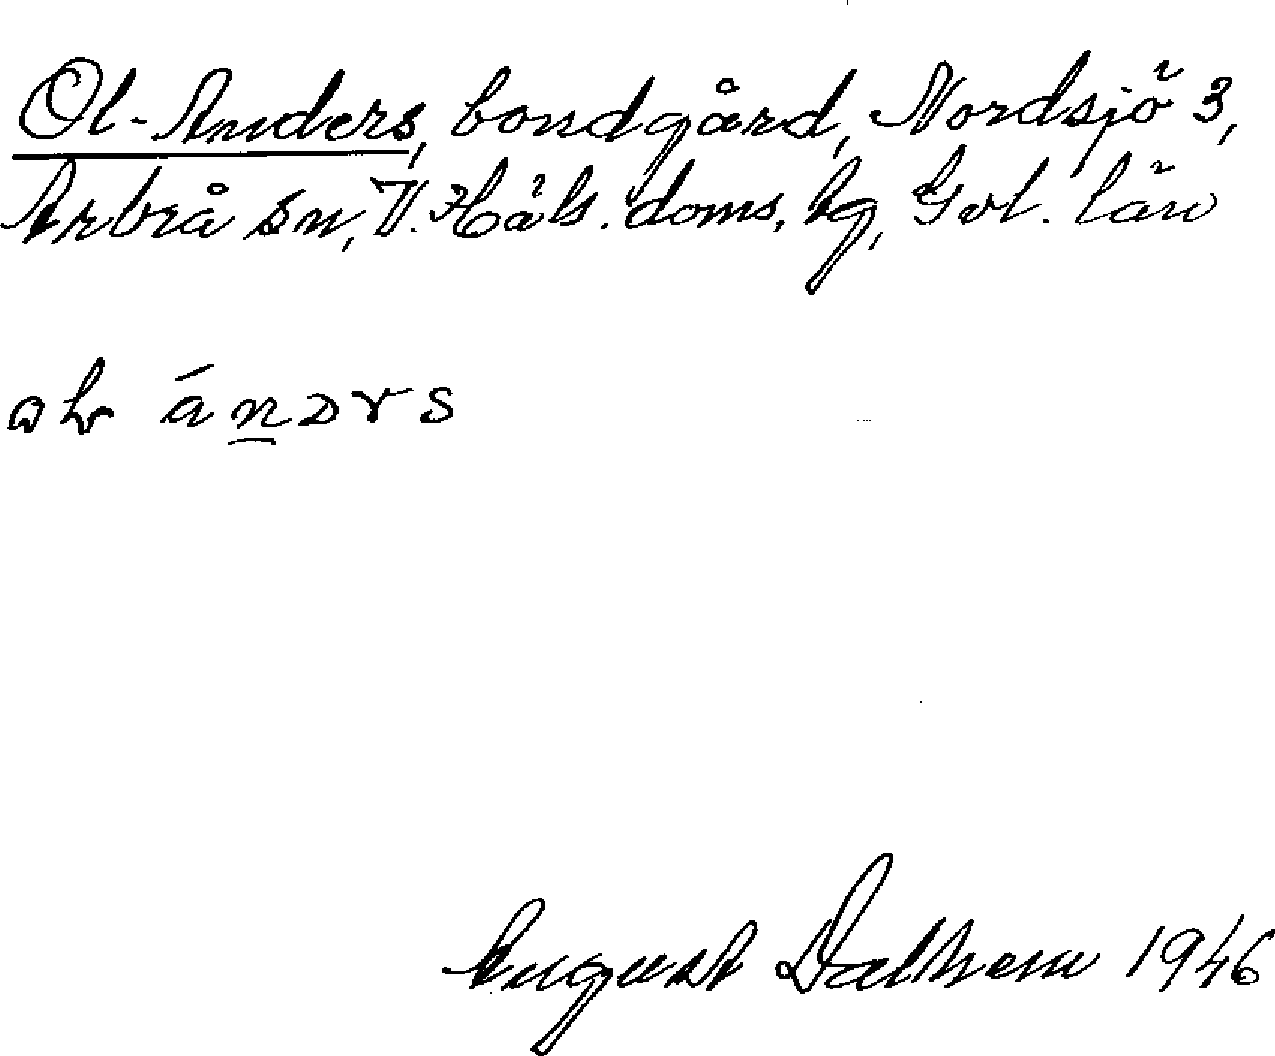 Ol-Anders, bondgård, Nordsjö 3,
Arbrå sn, V. Häls. doms. hg, Gvl. län
August Dalhem 1946